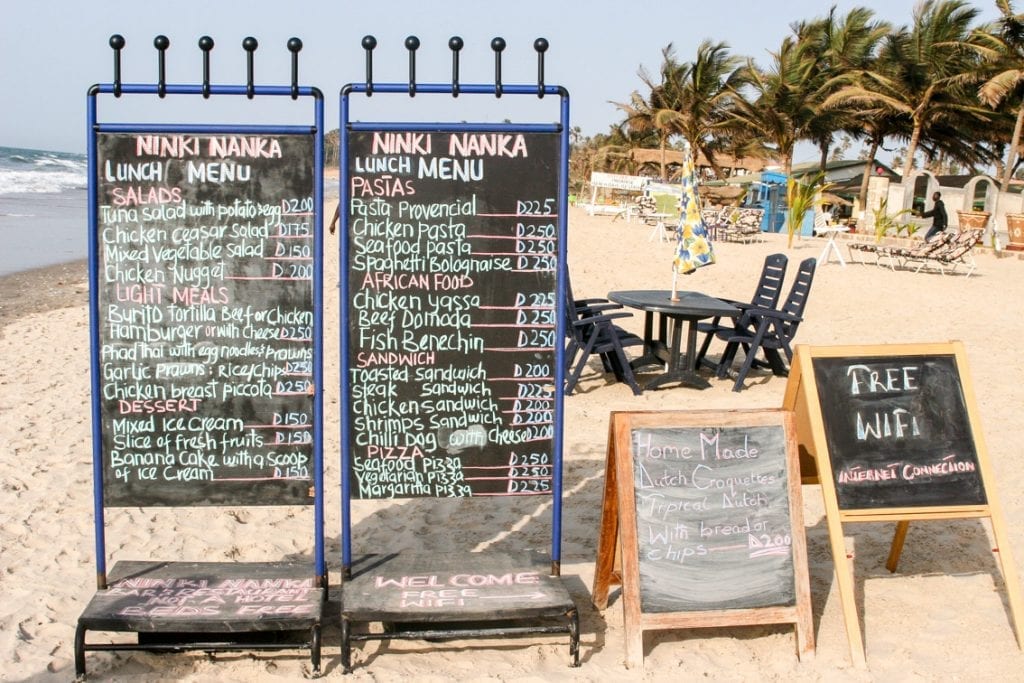 NINKI NANKA
LUNCH MENU
SALADS
Tuna Salad with potato & egg D200
Chicken ceasar Salad D175
Mixed Vegetable salad D150
Chicken Nugget D200
LIGHT MEALS
Burito tortilla Beef or Chicken
Hamburger or with cheese D250
Phad thai with egg noodles & Prawns
Garlic Prawns: Rice/chips D250
Chicken breast piccota D250
DESSERT
Mixed ice Cream D150
Slice of fresh fruits D150
Banana Cake with a Scoop
of ice Cream D150
NINKI NANKA
BAR & RESTAURANT
BEDS FREE
NINKI NANKA
LUNCH MENU
PASTAS
Pasta Provencial D225
Chicken pasta D250
Seafood pasta D250
Spaghetti Bolognaise D250
AFRICAN FOOD
Chicken yassa D250
Beef Domada D250
Fish Benechin D250
SANDWICH
Toasted sandwich D200
steak sandwich D225
Chicken sandwich D200
shrimps sandwich D200
Chilli Dog with Cheese D200
PIZZA
Seafood Pizza D250
Vegetarian Pizza D250
Margarita Pizza D225
WELCOME
FREE
WIFI
Home Made
Dutch Croquettes
Trpical Dutch
With bread or
chips D200
FREE
WIFI
INTERNET CONNECTION